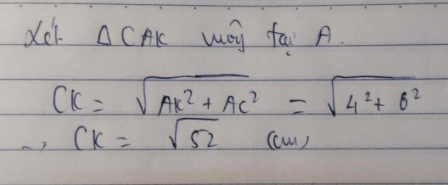 Xét ΔCAK vuông tại A.
CK = √(AK² + AC²) = √(4² + 6²)
~> CK = √52 (cm)